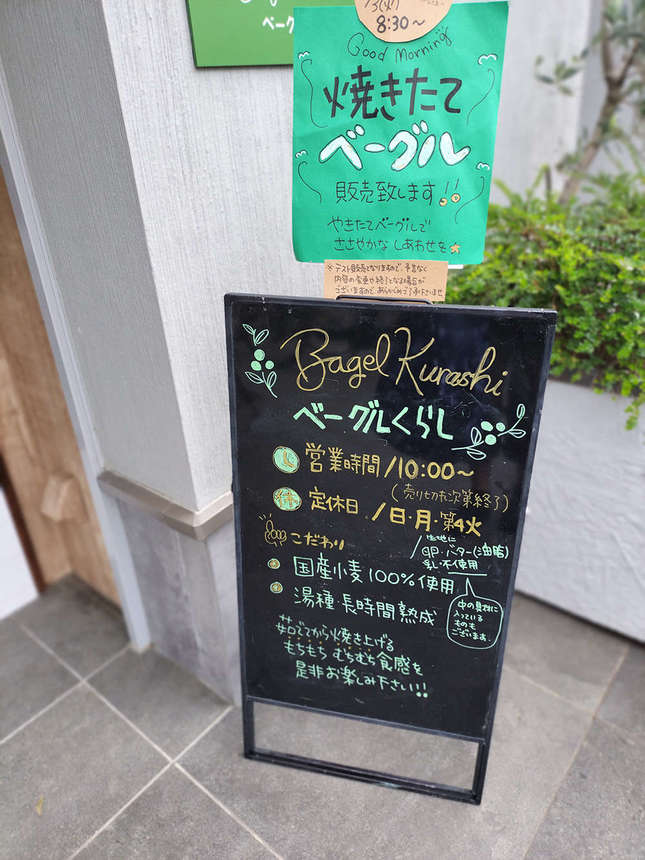 ベー
/3(火)
8:30〜
Good Morning
焼きたて
ベーグル
販売致します!!
やきたてベーグルで
ささやかな しあわせを
※テスト販売となりますので、予告なく
内容の変更や終了となる場合が
ございますので、あらかじめご了承下さいませ
Bagel Kurashi
ベーグルくらし
営業時間/10:00〜
(売り切れ次第終了)
定休日 /日・月・第4火
こだわり
生地に
卵・バター(油脂)
乳・不使用
国産小麦100%使用
湯種 長時間熟成
中の具材に
入っている
ものも
ございます。
茹でてから焼き上げる
もちもち むちむち食感を
是非お楽しみ下さい!!